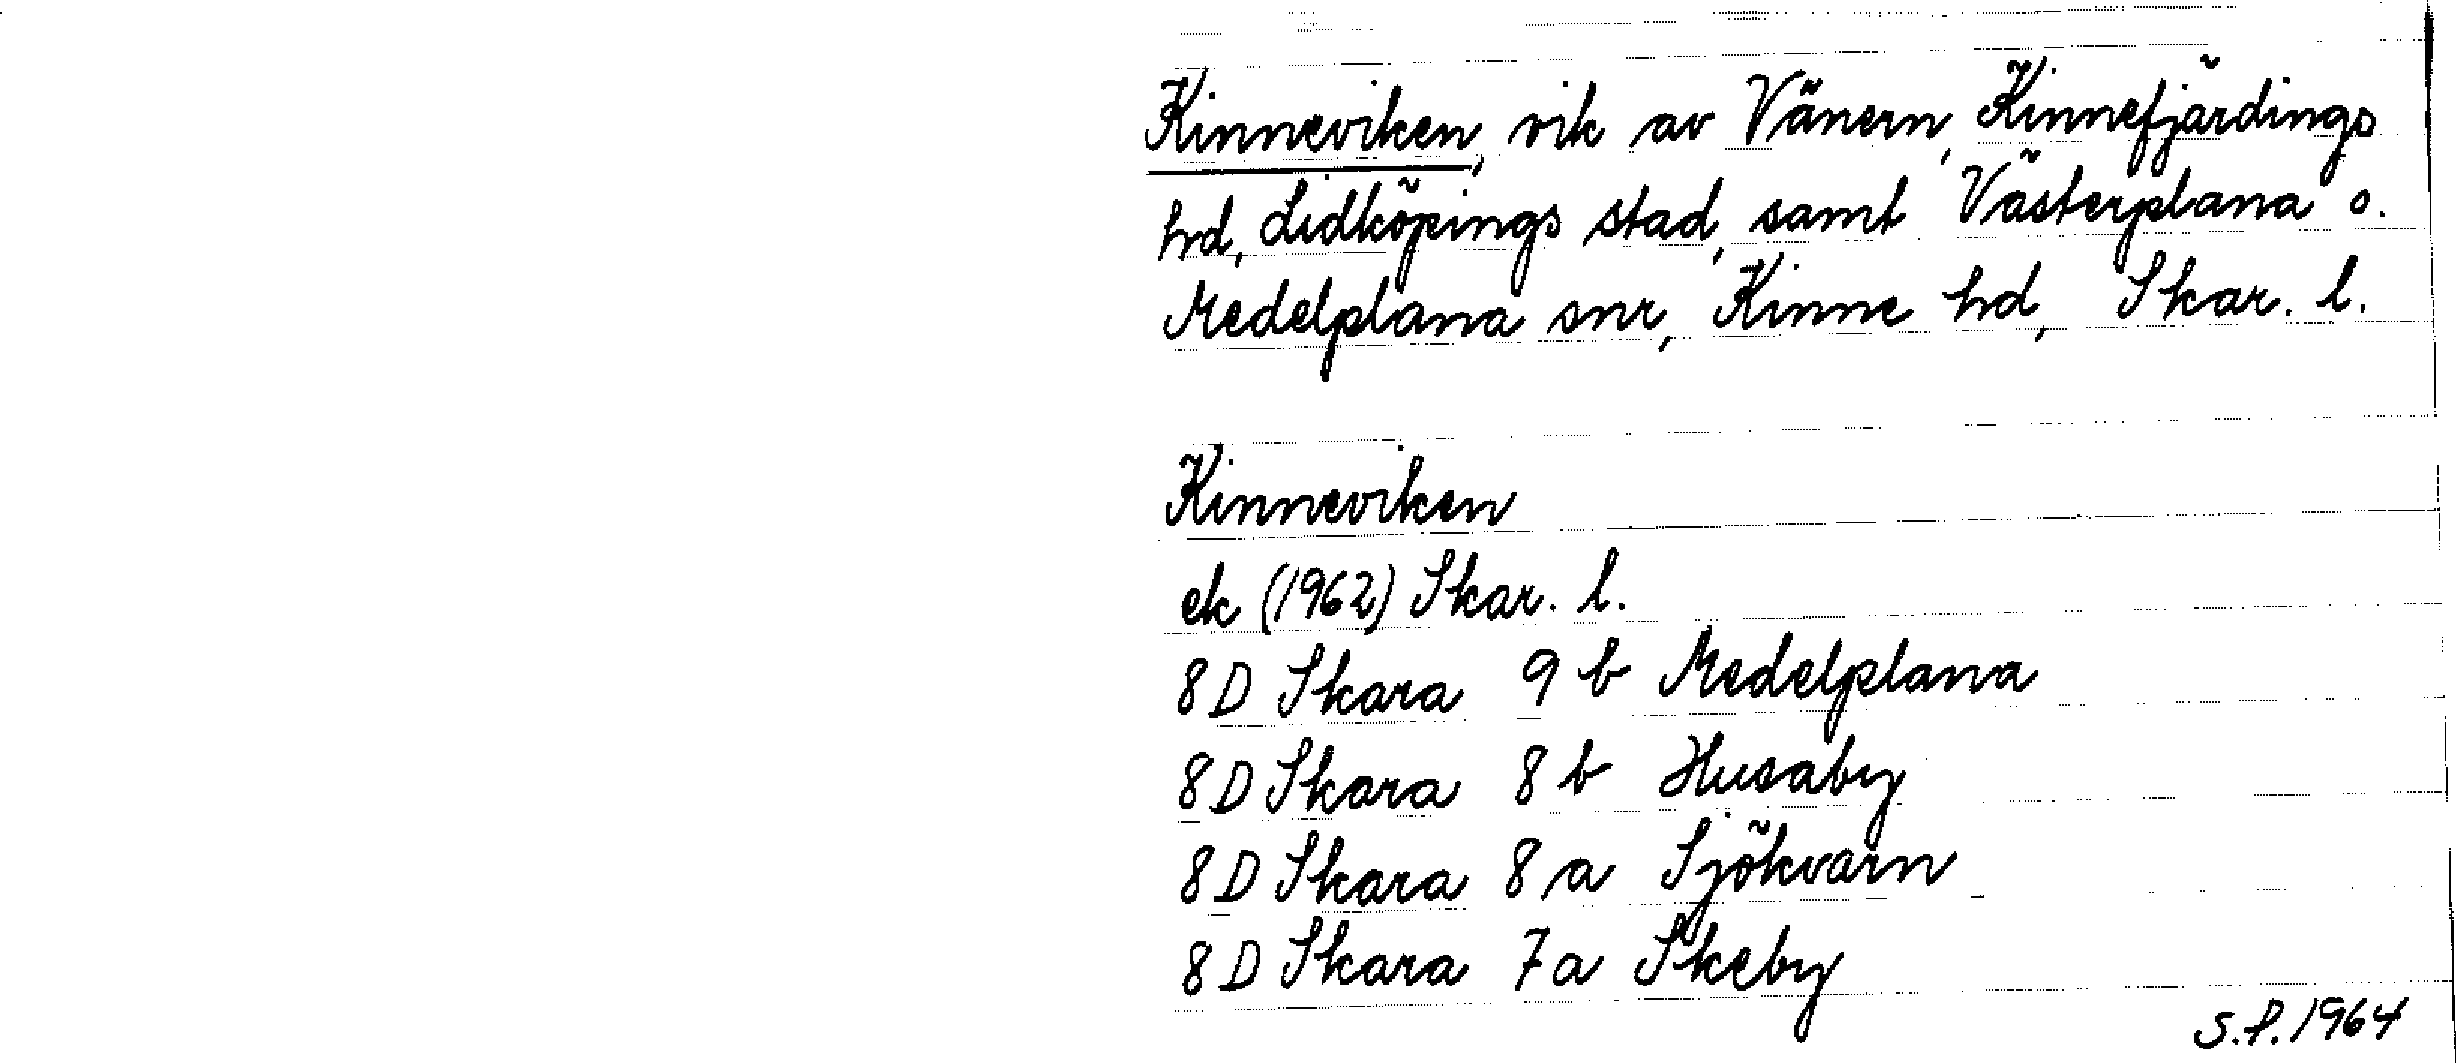 Kinneviken, vik av Vänern, Kinnefjärdings
hd, Lidköpings stad, samt Västerplana o.
Medelplana snr, Kinne hd, Skar. l.
Kinneviken
ek (1962) Skar. l.
8 D Skara 9 b Medelplana
8 D Skara 8 b Husaby
8 D Skara 8 a Sjökvarn
8 D Skara 7 a Skeby
S.P. 1964